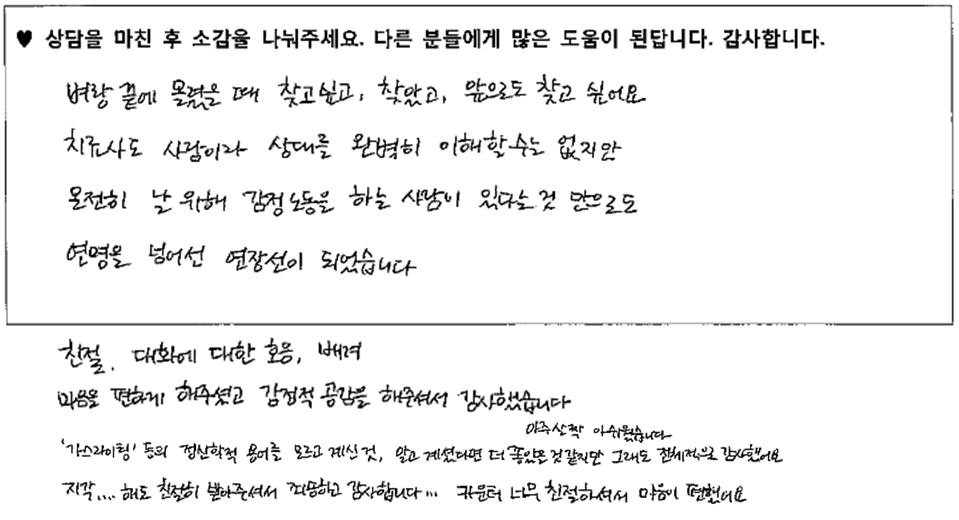 ♥ 상담을 마친 후 소감을 나눠주세요. 다른 분들에게 많은 도움이 된답니다. 감사합니다.
벼랑 끝에 몰렸을 때 찾고싶고, 찾았고, 앞으로도 찾고 싶어요
치료사도 사람이라 상대를 완벽히 이해할수는 없지만
온전히 날 위해 감정노동을 하는 사람이 있다는것 만으로도
연명을 넘어선 연장선이 되었습니다
친절, 대화에 대한 호응, 배려
마음을 편하게 해주셨고 감정적 공감을 해주셔서 감사했습니다
아주살짝 아쉬웠습니다
'가스라이팅' 등의 정신학적 용어를 모르고 계신것, 알고 계셨다면 더 좋았을것같지만 그래도 전체적으로 감사했어요
지각.... 해도 친절히 받아주셔서 죄송하고 감사합니다... 카운터 너무 친절하셔서 마음이 편했어요